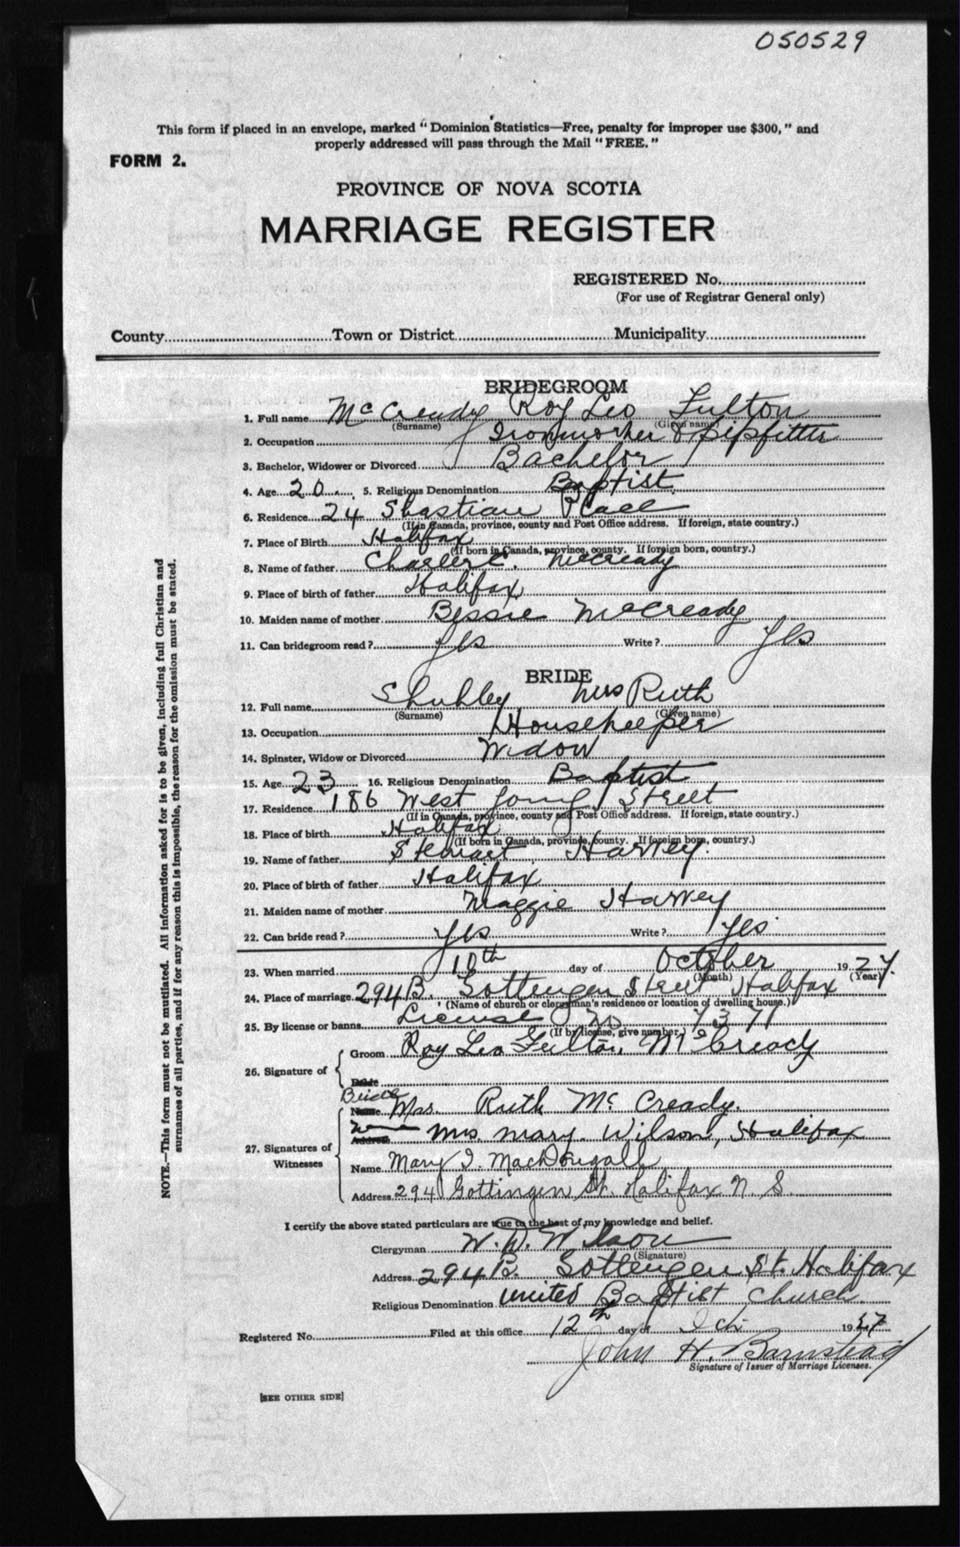 050529
This form if placed in an envelope, marked "Dominion Statistics—Free, penalty for improper use $300," and
properly addressed will pass through the Mail "FREE."
FORM 2.
PROVINCE OF NOVA SCOTIA
MARRIAGE REGISTER
REGISTERED No.
(For use of Registrar General only)
County Town or District Municipality
BRIDEGROOM
1. Full name McCready Roy Leo Fulton
(Surname) (Given name)
2. Occupation Ironworker & pipfitter
3. Bachelor, Widower or Divorced Bachelor
4. Age 20 5. Religious Denomination Baptist
6. Residence 24 Place
(If in Canada, province, county and Post Office address. If foreign, state country.)
7. Place of Birth Halifax
(If born in Canada, province, county. If foreign born, country.)
8. Name of father Charles C. McCready
9. Place of birth of father Halifax
10. Maiden name of mother Bessie McCready
11. Can bridegroom read? yes Write? yes
BRIDE
12. Full name Shubley Mrs Ruth
(Surname) (Given name)
13. Occupation Housekeeper
14. Spinster, Widow or Divorced Widow
15. Age 23 16. Religious Denomination Baptist
17. Residence 186 West Street
(If in Canada, province, county and Post Office address. If foreign, state country.)
18. Place of birth Halifax
(If born in Canada, province, county. If foreign born, country.)
19. Name of father Stewart Harvey.
20. Place of birth of father Halifax
21. Maiden name of mother Maggie Harvey
22. Can bride read? yes Write? yes
23. When married 10th day of October 1927.
(Month) (Year)
24. Place of marriage 294B. Gottengen Street Halifax
(Name of church or clergyman's residence or location of dwelling house.)
25. By license or banns License No 7371
(If by license, give number.)
26. Signature of Groom Roy Leo Fulton McCready
Bride
Bride Name Mrs. Ruth McCready.
27. Signatures of Witnesses Name Address Mrs. Mary. Wilson, Halifax
Name Mary I. MacDougall
Address 294 Gottingen St. Halifax N. S.
I certify the above stated particulars are true to the best of my knowledge and belief.
Clergyman W. D. Wilson
(Signature)
Address 294 B. Gottengen St. Halifax
Religious Denomination United Baptist Church
Registered No. Filed at this office 12th day of Oct 1927
John H. Barnstead
Signature of Issuer of Marriage Licenses.
[SEE OTHER SIDE]
NOTE.—This form must not be mutilated. All information asked for is to be given, including full Christian and
surnames of all parties, and if for any reason this is impossible, the reason for the omission must be stated.